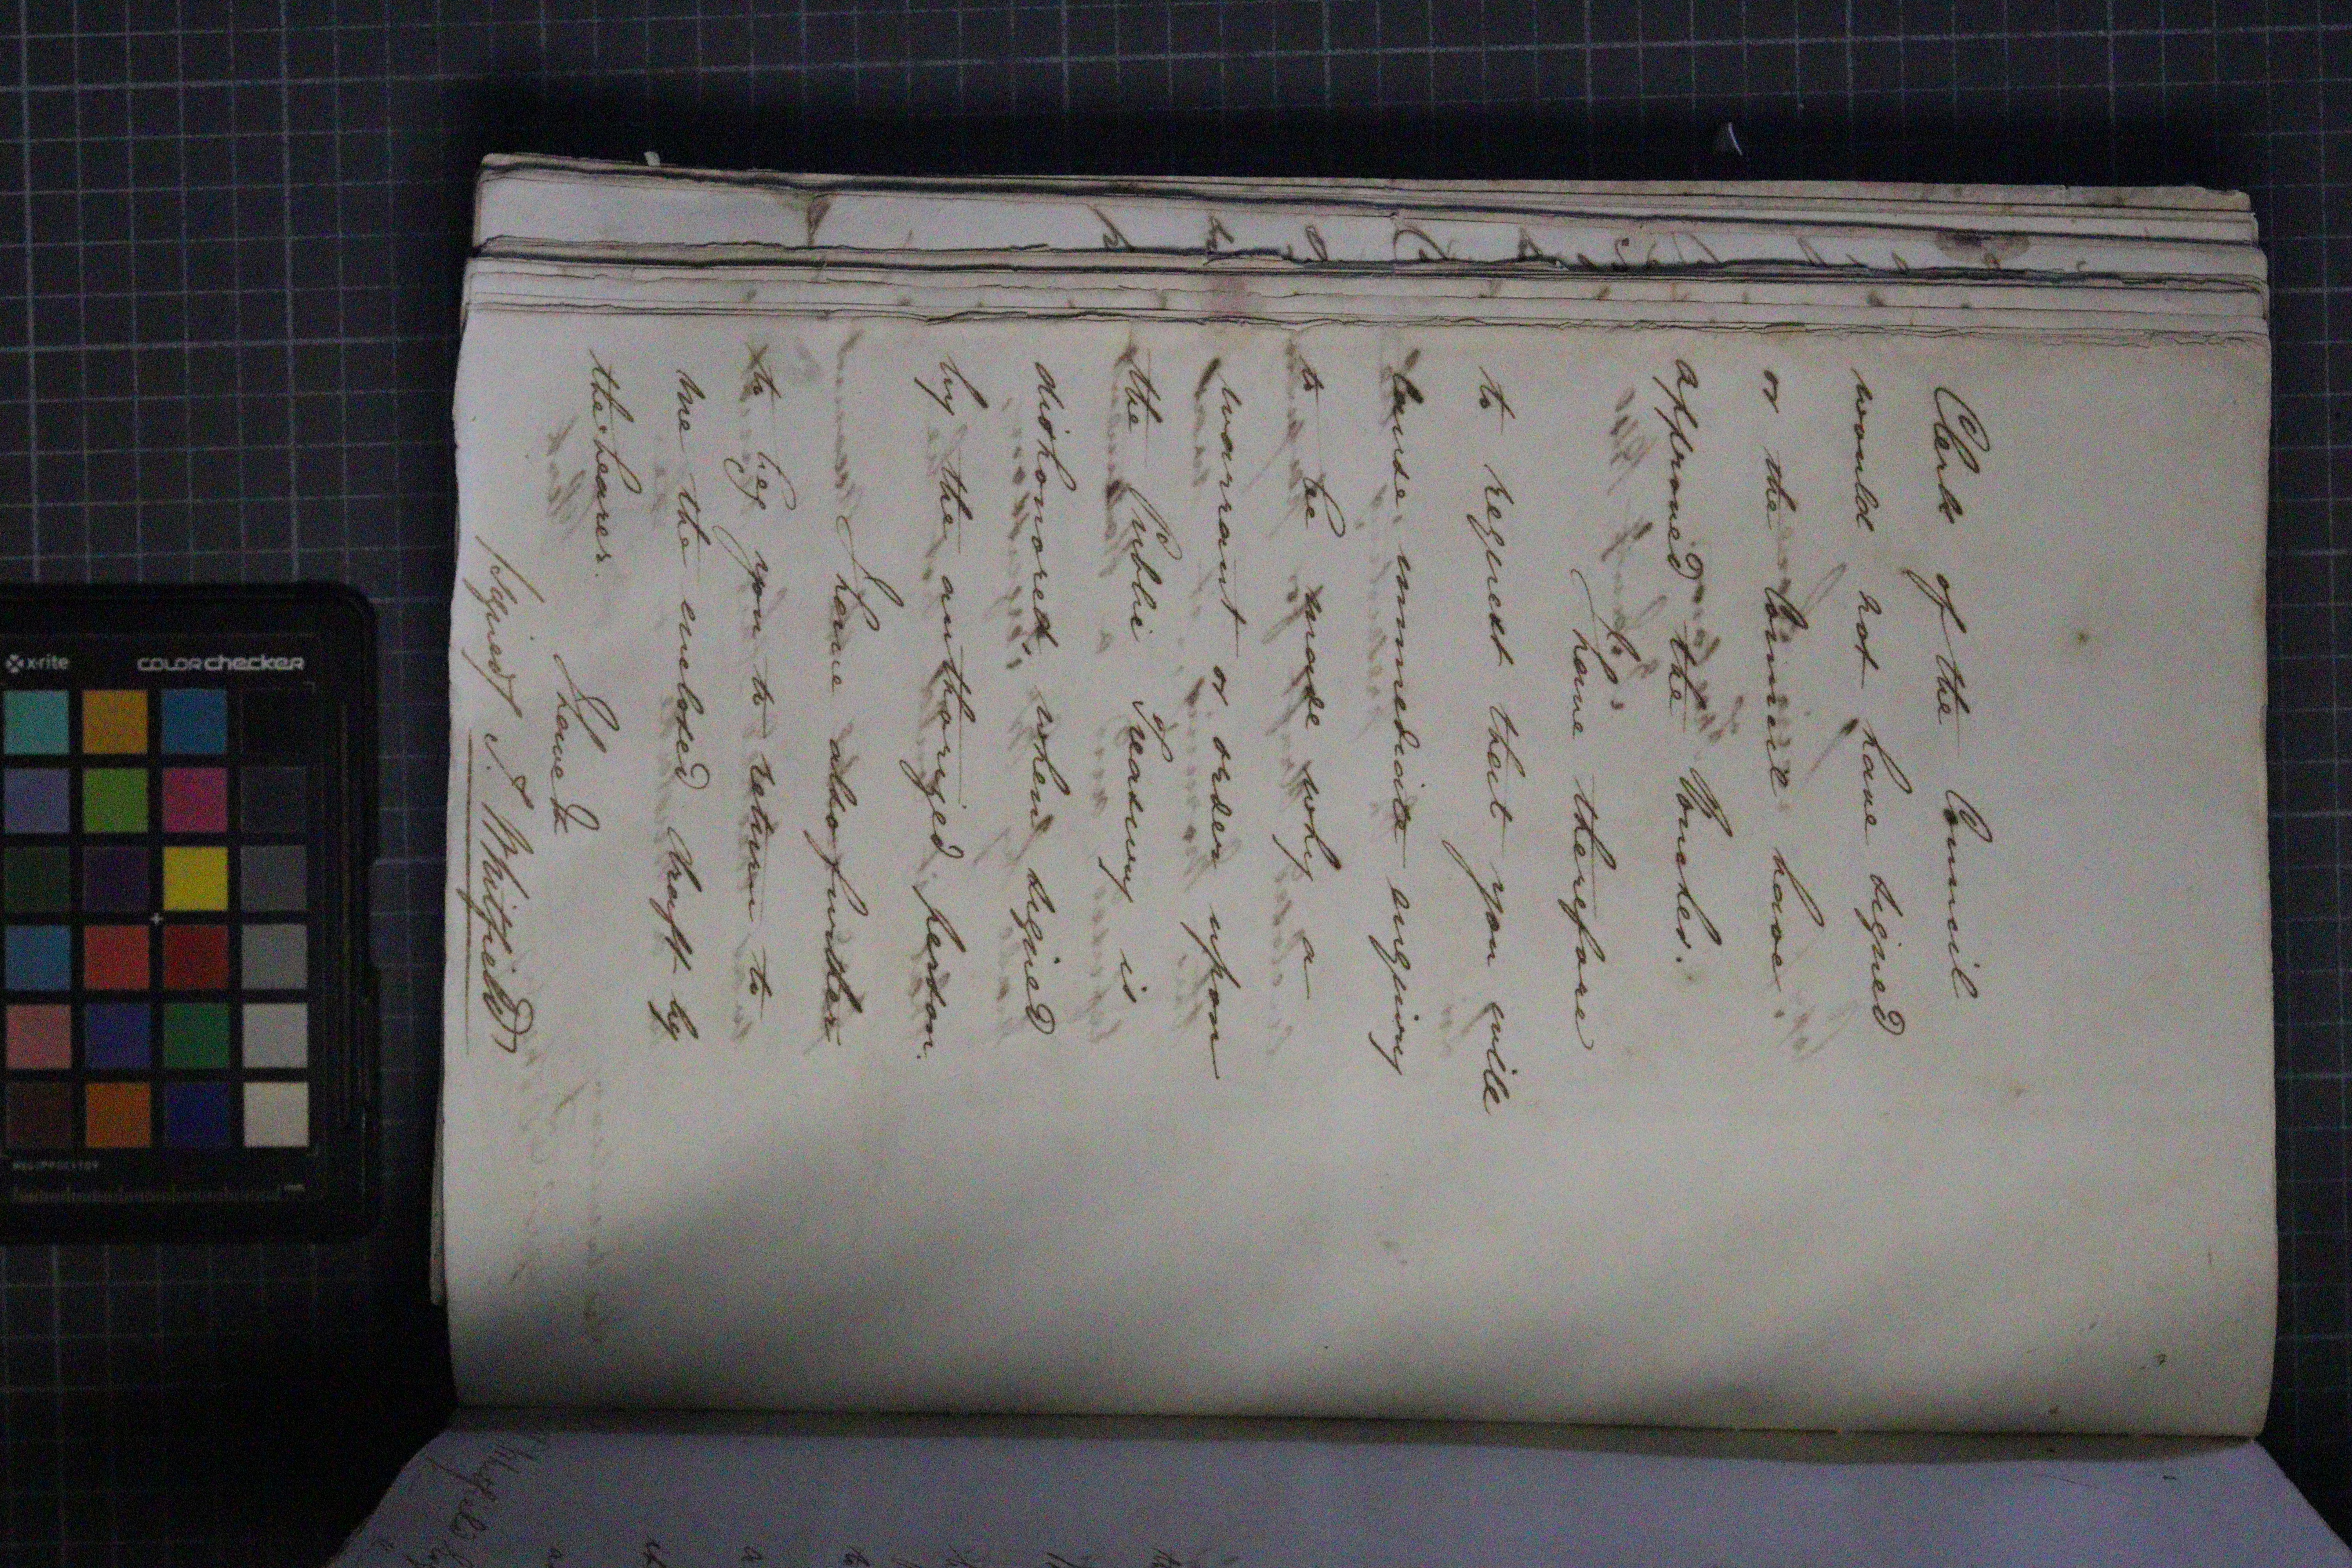 Clerk of the Council
would not have signed
or the Council have
approved the Voucher.
I have therefore
to request that you will
cause immediate enquiry
to be made why a
warrant or order upon
the Public Treasury is
dishonored, when signed
by the authorized person.
I have also further
to beg you to return to
me the enclosed draft by
the bearer.
I have &
(Signed) J. Whitfield)
x-rite
colorchecker